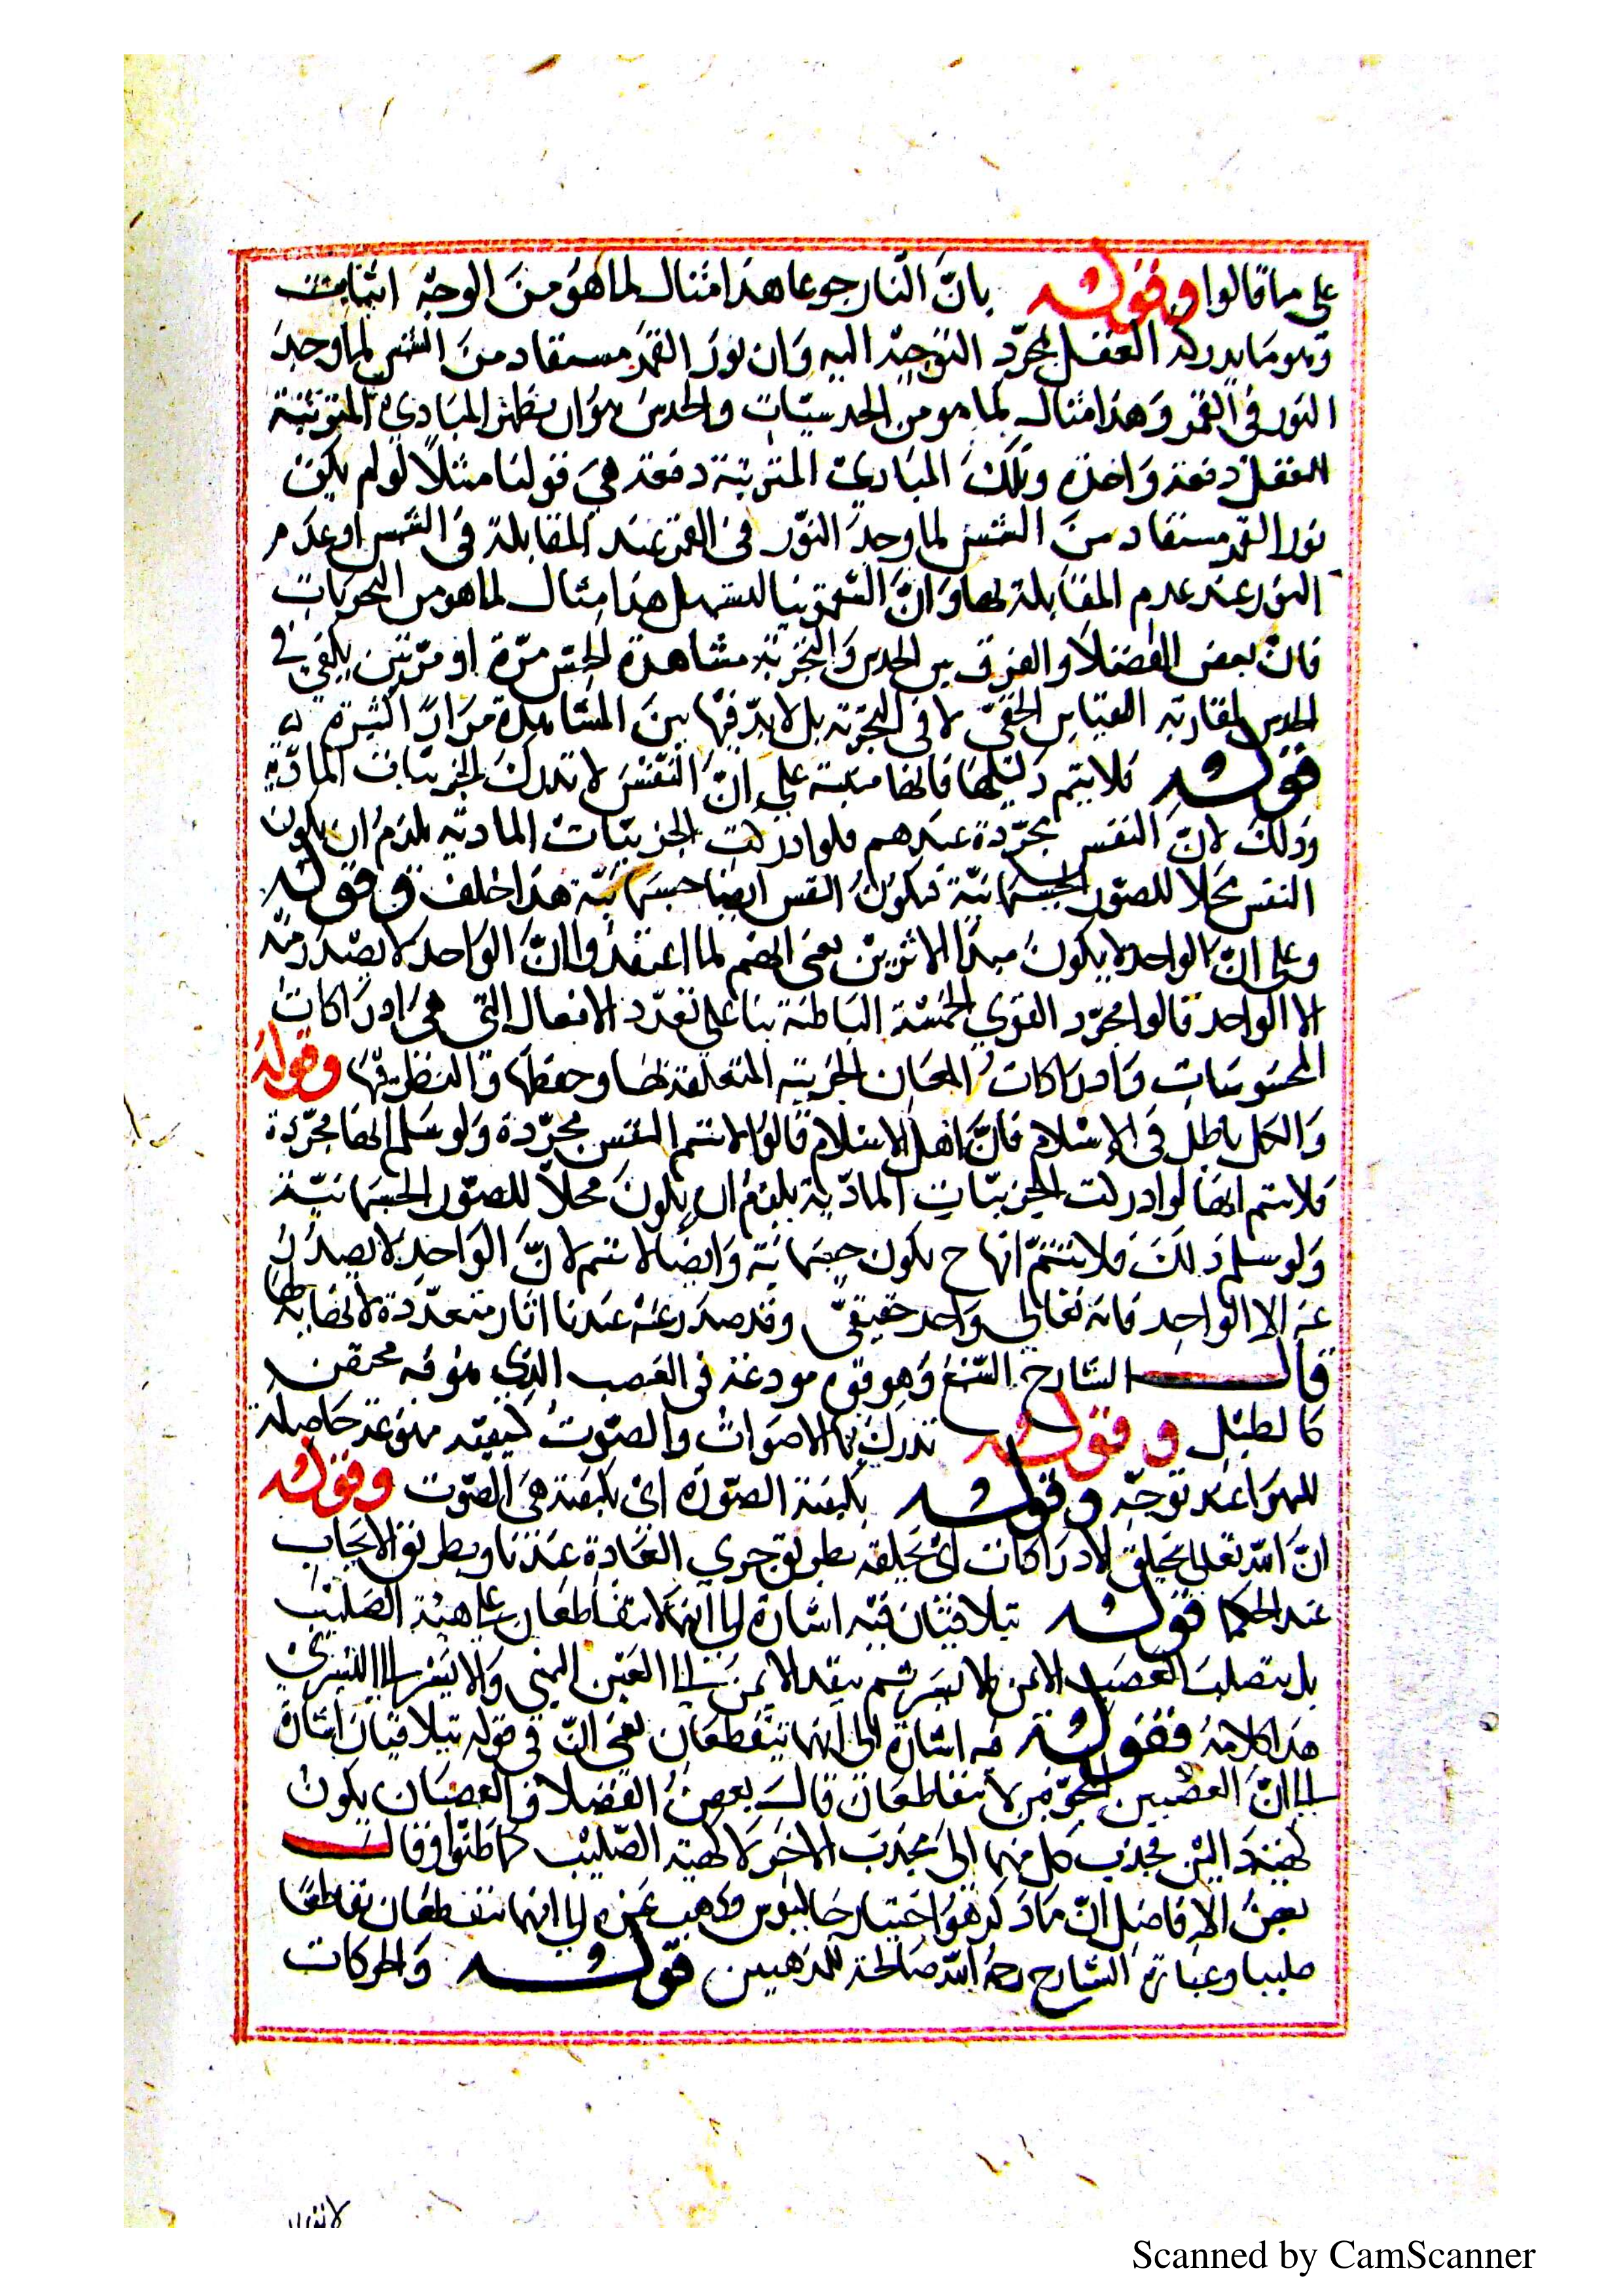 على ما قالوا وقوله بانّ لنا رجوعا هذا مثال لما هو من الوجه اثبات
وهو ما يدركه العقل بمجرّد التوجّه اليه وان نور القمر مستفاد من الشمس لما وجد
النور في القمر وهذا مثال لما هو من الحدسيّات والحدس هو ان يظهر المبادي المترتبة
العقل دفعة واحدة وتلك المبادي المترتبة دفعة هي قولنا مثلا لو لم يكن
نور القمر مستفاد من الشمس لما وجد النّور في القمر عند المقابلة في الشمس او عدم
النور عند عدم المقابلة لها وانّ السّقمونيا لتسهل هذا مثال لما هو من التجربيات
قال بعض الفضلاء والفرق بين الحدس والتجربة مشاهدة الحسّ مرّة او مرّتين يكفي في
الحدس لمقارنته القياس الخفيّ لا في التجربة بل لا بدّ فيها بين المشاهدة مرارا كثيرة
قوله فلا يتم دليلها فانها مبنية علي انّ النّفس لا تدرك الجزئيّات الماديّة
وذلك لانّ النفس مجرّدة عندهم فلو ادركت الجزئيّات الماديّة يلزم ان يكون
النفس محلا للصّور الجسمانيّة فيكون النفس ايضا جسمانيّة هذا خلف وقوله
وعلى انّ الواحد لا يكون مبدا لاثرين يعني انهم لما اعتقدوا انّ الواحد لا يصدر منه
الا الواحد قالوا مجرّد القوي الخمسة الباطنة بنا على تعدّد الافعال التي هي ادراكات
المحسوسات وادراكات المعاني الجزئية المتعلقة بها وحفظها والنظر فيها وقوله
والكل باطل في الاسلام فانّ اهل الاسلام قالوا لا نسلم النفس مجرّدة ولو سلم انها مجرّدة
فلا نسلم انها لو ادركت الجزئيّات الماديّة يلزم ان يكون محلاّ للصّور الجسمانيّة
ولو سلم ذلك فلا نسلّم انها ح يكون جسمانيّة وايضا لا نسلم لانّ الواحد لا يصدر
عنه الا الواحد فانه تعالي واحد حقيقيّ وقد صدر عنه عندنا اثار متعدّدة
قال الشارح السّمع وهو قوة مودعة في العصب الذي
كالطبل وقوله تدرك بها الاصوات والصّوت كيفية حاصلة
للهوا عند توجّه وقوله بكيفية الصوّرة اى بكيفية هي الصّوت وقوله
انّ الله تعالى يخلق الادراكات اى يخلقه بطريق جري العادة عندنا وبطريق الايجاب
عند الحكما قوله يتلاقيان فيه اشارة الى انهما لا يتقاطعان على هيئة الصليب
بل يتصلب العصب الايمن بالايسر ثم ينفذ الايمن الى العين اليمني والايسر الى اليسرى
هذا كلامه فقوله فيه اشارة الى انهما يتقطعان يعني انّ في قوله يتلاقيان اشارة
الى انّ العصبين المجوّفين لا يتقاطعان قال بعض الفضلاء في العصبان يكون
لهيئة دالين محدب كل منهما الى محدب الاخر لا لهيئة الصّليب كما ظنّوا وقال
بعض الافاضل انّ ما ذكر هو اختيار جالينوس وذهب غيره الى انهما يتقطعان تقاطعا
صليبيا وعبارة الشارح رحمه الله صالحة للمذهبين قوله والحركات
Scanned by CamScanner